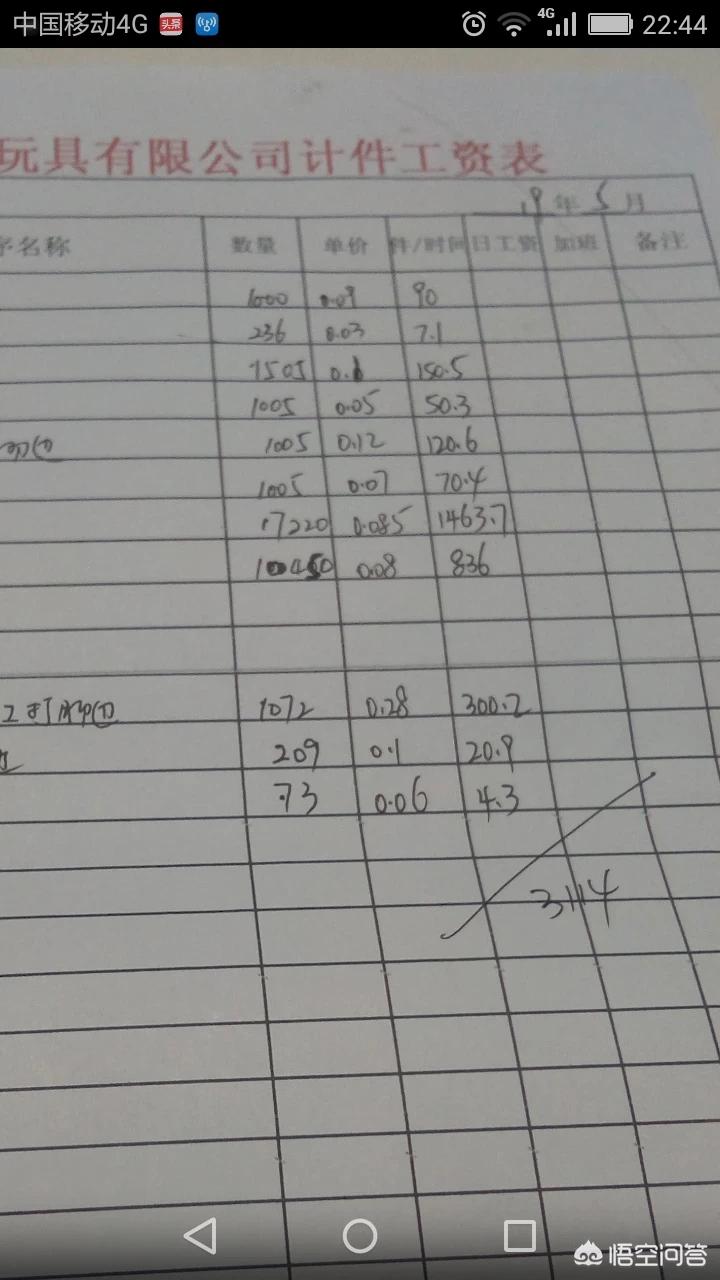 中国移动4G 头条 4G 22:44
玩具有限公司计件工资表
19年5月
序名称 数量 单价 件/时间 日工资 加班 备注
1000 0.09 90
236 0.03 7.1
1505 0.1 150.5
1005 0.05 50.3
1005 0.12 120.6
1005 0.07 70.4
17220 0.085 1463.7
10450 0.08 836
1072 0.28 300.2
209 0.1 20.9
73 0.06 4.3
3114
悟空问答